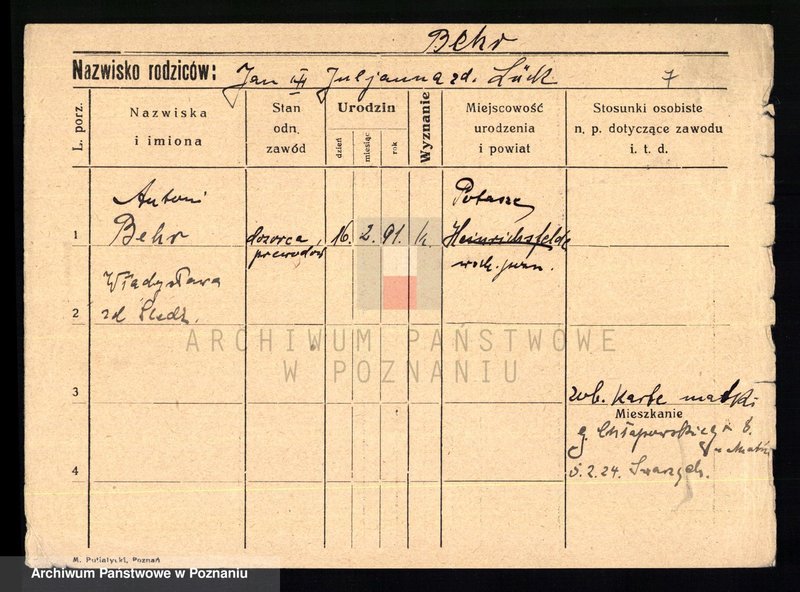 Behr
Nazwisko rodziców: Jan i Juljanna zd. Lück 7
L. porz.
Nazwiska
i imiona
Stan
odn.
zawód
Urodzin
dzień
miesiąc
rok
Wyznanie
Miejscowość
urodzenia
i powiat
Stosunki osobiste
n. p. dotyczące zawodu
i. t. d.
1
Antoni
Behr
dozorca
przewodów
16. 2. 91. k.
Potasze
Heinrichsfelde
2
Władysława
zd
ARCHIWUM PAŃSTWOWE
W POZNANIU
3
zob. Kartę matki
Mieszkanie
g. Chłapowskiego 8.
4
5.2.24.
M. Putiatycki, Poznań
Archiwum Państwowe w Poznaniu